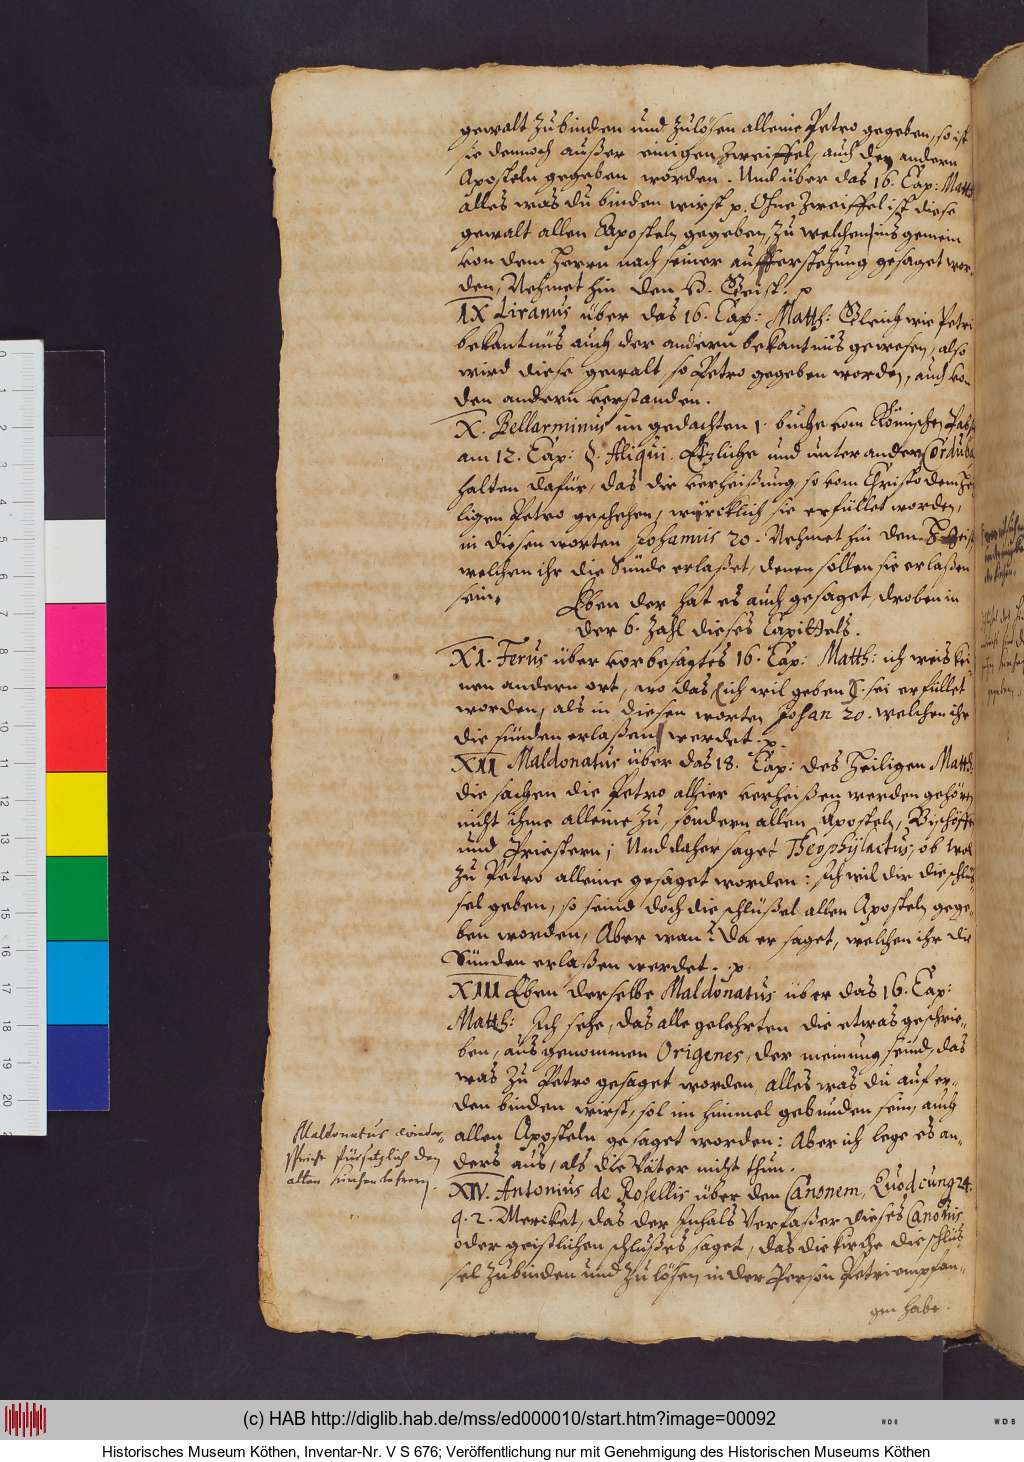 gewalt zubinden und zulösen alleine Petro gegeben, so ist
sie dennoch außer einigen Zweiffel, auch den andern
Aposteln gegeben worden. Und über das 16. Cap: Matth
alles was du binden wirst p. Ohne Zweiffel ist diese
gewalt allen Aposteln gegeben, zu welchen ins gemein
von dem Herrn nach seiner aufferstehung gesaget wor-
den, Nehmet hin den H. Geist. p
IX Liranus über das 16. Cap: Matth: Gleich wie Petri
bekantnüs auch der andern bekantnüs gewesen, also
wird diese gewalt so Petro gegeben worden, auch von
den andern verstanden.
X. Bellarminus im gedachten 1. buche vom Römischen Pabst
am 12. Cap: §. Aliqui. Etzliche und unter andern Corduba
halten dafür, das die verheißung, so vom Christo dem Hei
ligen Petro geschehen, würcklich sie erfüllet worden,
in diesen worten Johannis 20. Nehmet hin den H. Geist
welchen ihr die Sünde erlaßet, denen sollen sie erlaßen
sein.
Eben der hat es auch gesaget droben in
der 6. Zahl dieses Capittels.
XI. Ferus über vorbesagtes 16. Cap: Matth: ich weis kei
nen andern ort, wo das, (ich wil geben) sei erfüllet
worden, als in diesen worten Johan 20. welchen ihr
die sünden erlaßen werdet. p.
XII Maldonatus über das 18. Cap: des Heiligen Matth.
die sachen die Petro alhier verheißen werden gehören
nicht ihme alleine zu, sondern allen Aposteln, Bischöffen
und Priestern; Und daher saget Theophylactus, ob wol
zu Petro alleine gesaget worden: Ich wil dir die schlüs
sel geben, so seind doch die schlüßel allen Aposteln gege-
ben worden, Aber wan? Da er saget, welchen ihr die
Sünden erlaßen werdet. p
XIII Eben derselbe Maldonatus über das 16. Cap:
Matth: Ich sehe, das alle gelehrten die etwas geschrie-
ben, ausgenommen Origenes, der meinung seind, das
was zu Petro gesaget worden, alles was du auf er-
den binden wirst, sol im himmel gebunden sein, auch
allen Aposteln gesaget worden: Aber ich lege es an-
ders aus, als die Väter nicht thun.
Maldonatus wieder-
spricht fürsetzlich den
alten Kirchen Lehrern.
XIV. Antonius de Rosellis über den Canonem, Quodcunq 24.
q. 2. Mercket, das der Inhals Verfaßer dieses Canonis
oder geistlichen schlußes saget, das die kirche die schlüs
sel zubinden und zu lösen, in der Person Petri empfan-
gen habe.
(c) HAB http://diglib.hab.de/mss/ed000010/start.htm?image=00092
Historisches Museum Köthen, Inventar-Nr. V S 676; Veröffentlichung nur mit Genehmigung des Historischen Museums Köthen